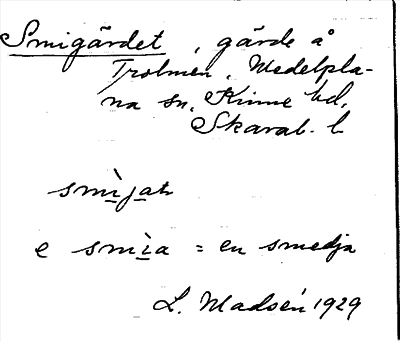 Smigärdet, gärde å
Trolmen, Medelpla-
na sn, Kinne hd,
Skarab. l.
smìjatr
e smìa = en smedja
L. Madsén 1929